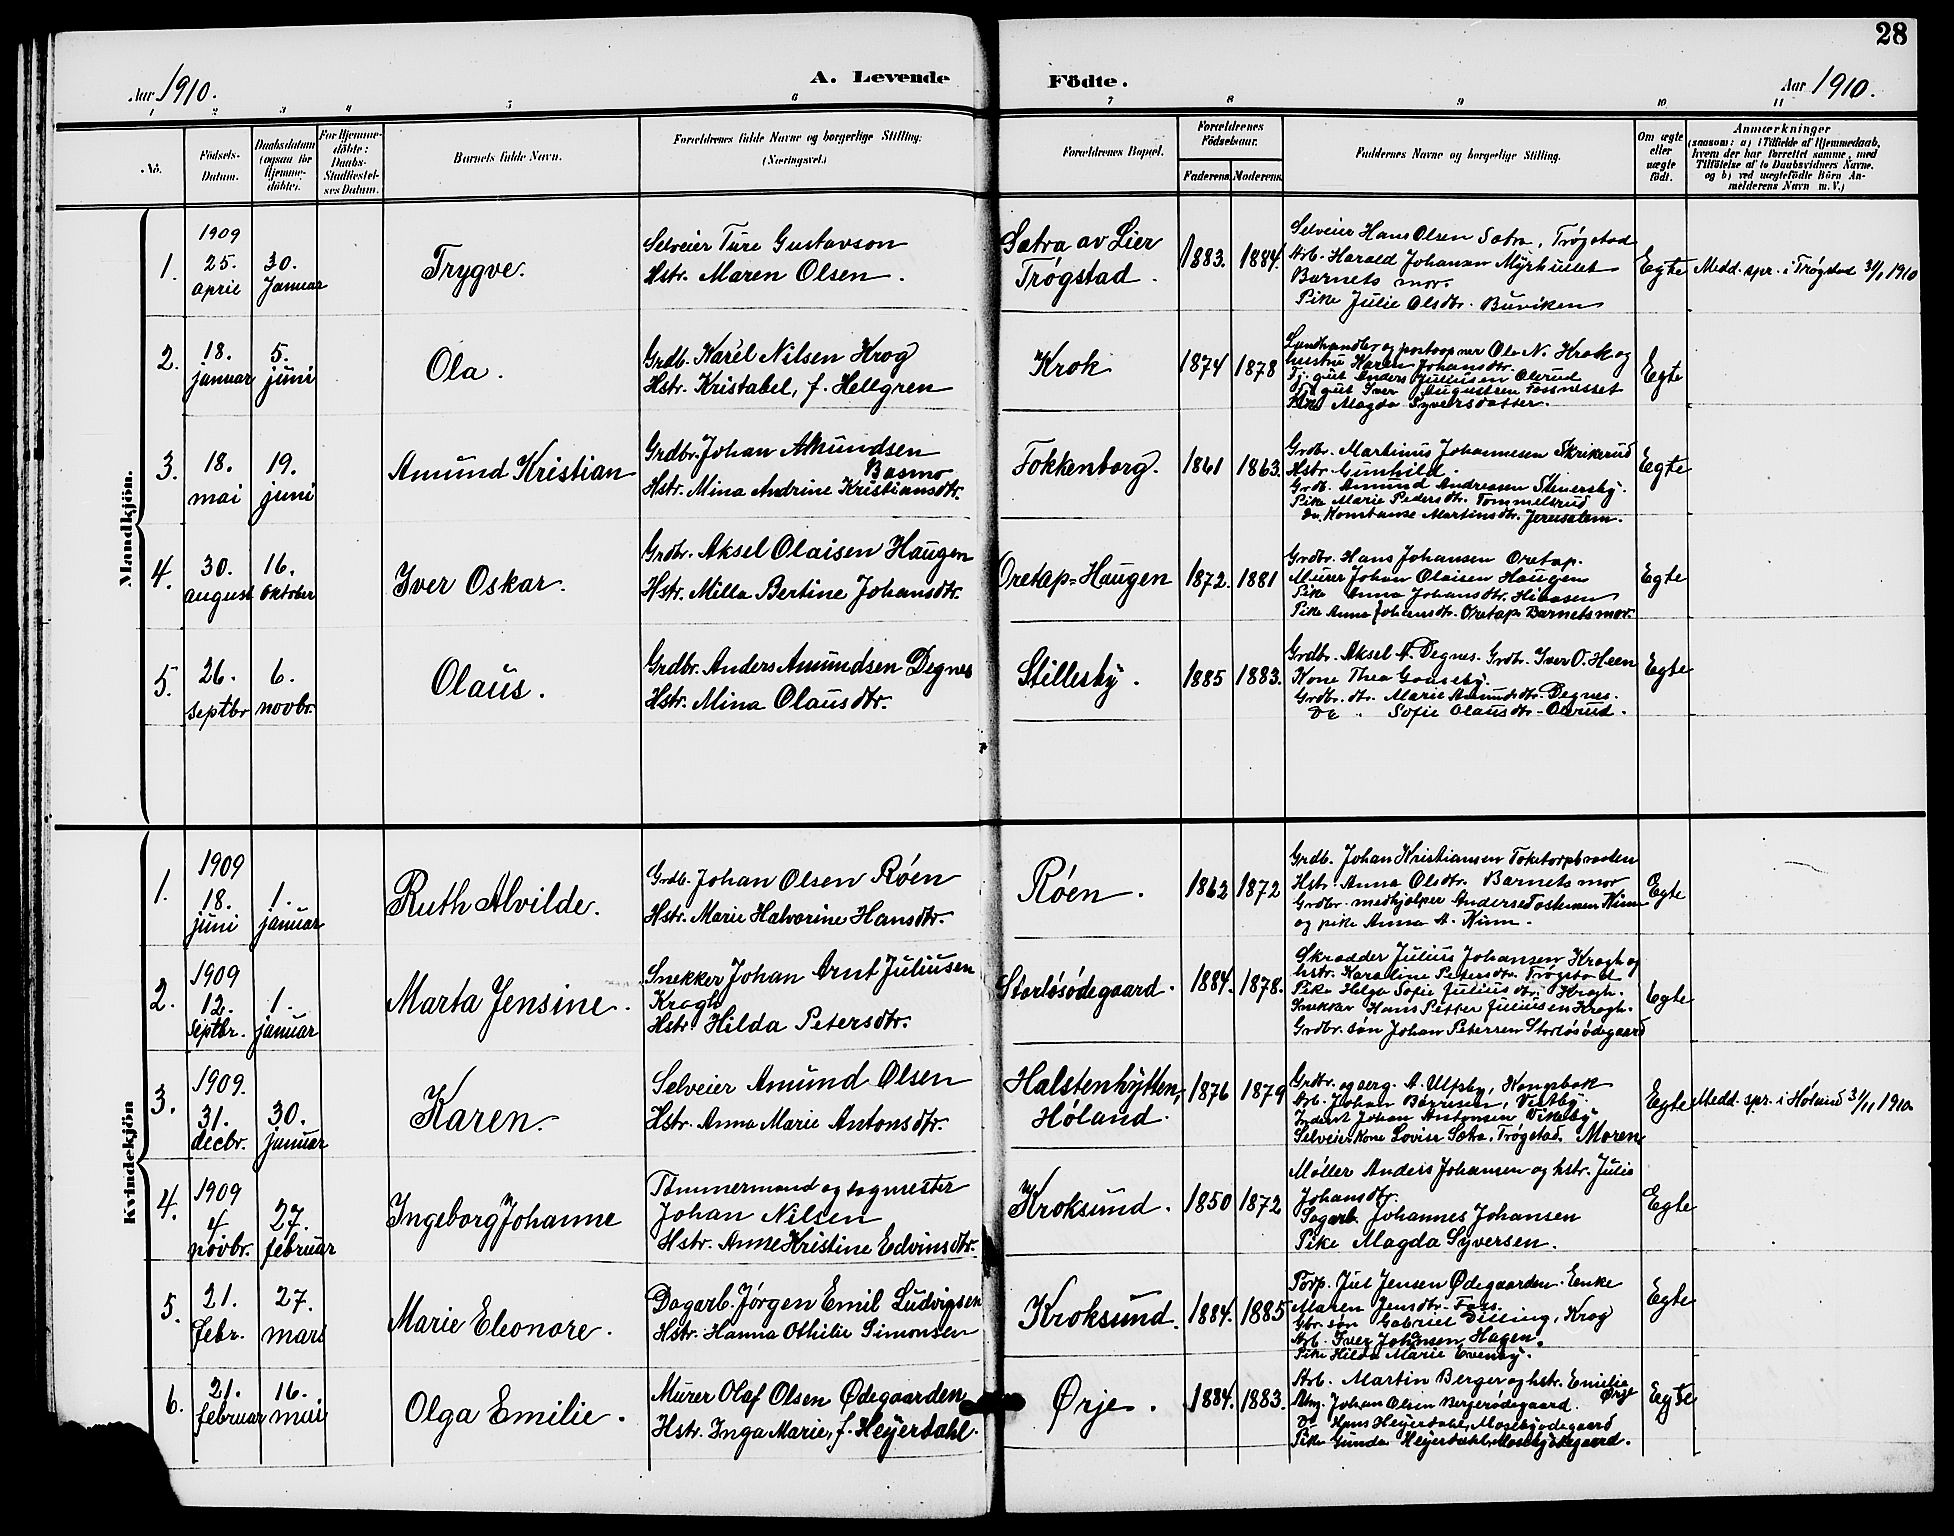 28
Aar 1910.
A. Levende Födte.
Aar 1910.
1 2 3 4 5 6 7 8 9 10 11
No.
Födsels-Datum.
Daabsdatum (ogsaa for Hjemmedöbte).
For Hjemmedöbte: Daabs-Stadfæstelses Datum.
Barnets fulde Navn.
Forældrenes fulde Navne og borgerlige Stilling. (Næringsvei.)
Forældrenes Bopæl.
Forældrenes Födselsaar.
Faderens. Moderens.
Faddernes Navne og borgerlige Stilling.
Om ægte eller uægte födt.
Anmærkninger
(saasom: a) i Tilfælde af Hjemmedaab,
hvem der har forrettet samme, med
Tilföielse af to Daabsvidners Navne.
og b) ved uægtefödte Börn An-
melderens Navn m. V.)
Mandkjön.
1.
1909
25. april
30. Januar
Trygve.
Selveier Ture Gustavson
Hstr. Maren Olsen.
Sætra av Lier
Trøgstad.
1883. 1884.
Selveier Hans Olsen Sætra, Trøgstad
Arb. Harald Johansen Myrhullet
Barnets mor.
Pike Julie Olsdtr. Buviken
Egte
Medd. spr. i Trøgstad 31/1 1910
2.
18. januar
5. juni
Ola.
Grdb. Karel Nilsen Krog
Hstr. Kristabel, f. Hellgren
Krok
1874 1878
Landhandler og postopner Ole N. Krok og
hustru Karen Johansdtr.
Tj. gut Anders Juliusen Olerud
Tj. gut Iver Augustsen Fossnesset
Pike Magda Syversdatter.
Egte
3.
18. mai
19. juni
Amund Kristian
Grdbr. Johan Amundsen
Basmo
Hstr. Mina Andrine Kristiansdtr.
Fokkenborg.
1861 1863.
Grdbr. Martinus Johannesen Skrikerud
Hstr. Gunhild.
Grdb. Amund Andreasen
Pike Marie Pedersdtr. Tommelsrud
Do. Konstanse Martinsdtr. Jerusalem.
Egte
4.
30. august
16. Oktober
Iver Oskar.
Grdbr. Aksel Olaisen Haugen
Hstr. Milla Bertine Johansdtr.
Oretap=Haugen
1872. 1881
Grdbr. Hans Johansen Oretap.
Murer Johan Olaisen Haugen
Pike Anna Johansdtr.
Pike Anna Johansdtr. Oretap Barnets mor.
Egte
5.
26. septbr
6. novbr.
Olaus.
Grdbr. Anders Amundsen Degnes
Hstr. Mina Olausdtr.
Stillesby.
1885 1883.
Grdbr. Aksel A. Degnes. Grdbr. Iver O. Heen
Kone Thea Gaaseby.
Grdbr. dtr. Marie Amundsdtr. Degnes.
Do " Sofie Olausdtr. Olerud.
Egte
Kvindekjön
1.
1909
18. juni
1. januar
Ruth Alvilde.
Grdb. Johan Olsen Røen
Hstr. Marie Halvorine Hansdtr.
Røen.
1862 1872
Grdb. Johan Kristiansen
Hstr. Anna Olsdtr. Barnets mor
Grdbr. medhjælper Anders Tostensen Kinn
og pike Anna A. Kinn.
Egte
2.
1909
12. Septbr.
1. januar
Marta Jensine.
Snekker Johan Arnt Juliusen
Krogh
Hstr Hilda Petersdtr.
Storløsødegaard.
1884. 1878.
Skrædder Julius Johansen Krogh og
hstr. Karoline Petersdtr. Trøgstad
Pike Helga Sofie Juliusdtr. Krogh.
Snekker Hans Petter Juliusen Krogh.
Grdbr. søn Johan Petersen Storløsødegaard
Egte
3.
1909.
31. decbr.
30. januar
Karen.
Selveier Amund Olsen
Hstr. Anna Marie Antonsdtr.
Halstenhytten,
Høland.
1876 1879
Grdbr. og serg. A. Ulfsby, Kongsbok
Arb. Johan Børresen, Vestby.
Inderst Johan Antonsen Vikeby
Selveierkone Lovise Sætra, Trøgstad. Moren
Egte
Medd. spr. i Høland 31/1 1910
4.
1909
4 novbr.
27. februar
Ingeborg Johanne
Tømmermand og sagmester
Johan Nilsen
Hstr. Anne Kristine Edvinsdtr.
Kroksund.
1850 1872
Møller Anders Johansen og hstr. Julie
Johansdtr.
Sagarb. Johannes Johansen
Pike Magda Syversen.
Egte
5.
21. febr.
27. mars
Marie Eleonore.
Dagarb. Jørgen Emil Ludvigsen
Hstr. Hanna Othilie Simonsen
Kroksund.
1884. 1885
Torp. Juel Jensen Ødegaarden. Enke
Maren Jensdtr. Foss.
Gbr. søn Gabriel Dilling, Krog
Arb. Iver Johansen Hagen.
Pike Hilda Marie Evensby.
Egte
6.
21. februar
16. mai
Olga Emilie.
Murer Olaf Olsen Ødegaarden
Hstr. Inga Marie, f. Heyerdahl.
Ørje.
1884. 1883.
Arb. Martin Berger og hstr. Emilie
Ørje
Johan Olsen Bergerødegaard.
Do Hans Heyerdahl, Mosebyødegaard
Pike Gunda Heyerdahl, Mosebyødegaard.
Egte